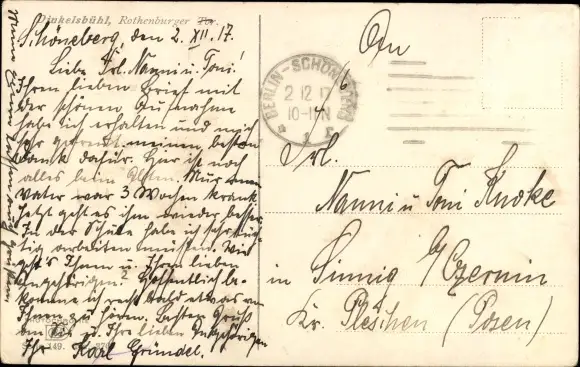 Dinkelsbühl, Rothenburger Tor.
Schöneberg, den 2. XII. 17.
Liebe Frl. Nanni u. Toni!
Ihren lieben Brief mit
der schönen Aufnahme
habe ich erhalten und mich
sehr gefreut, meinen besten
Dank dafür. Hier ist noch
alles beim Alten. Nur mein
Vater war 3 Wochen krank
Jetzt geht es ihm wieder besser.
In der Schule habe ich sehr tüch-
tig arbeiten müssen. Wie
geht's Ihnen u. Ihren lieben
Angehörigen? Hoffentlich be-
komme ich recht bald etwas von
Ihnen zu hören. Besten Gruß
an Sie u. Ihre lieben Angehörigen
Ihr Karl Gründel.
Meine Eltern lassen auch grüßen
149.
BERLIN-SCHÖNEBERG
2 12 17
10-11N
* 1 f
An
Frl.
Nanni u Toni
in
b/ Czermin
Kr. Pleschen (Posen)